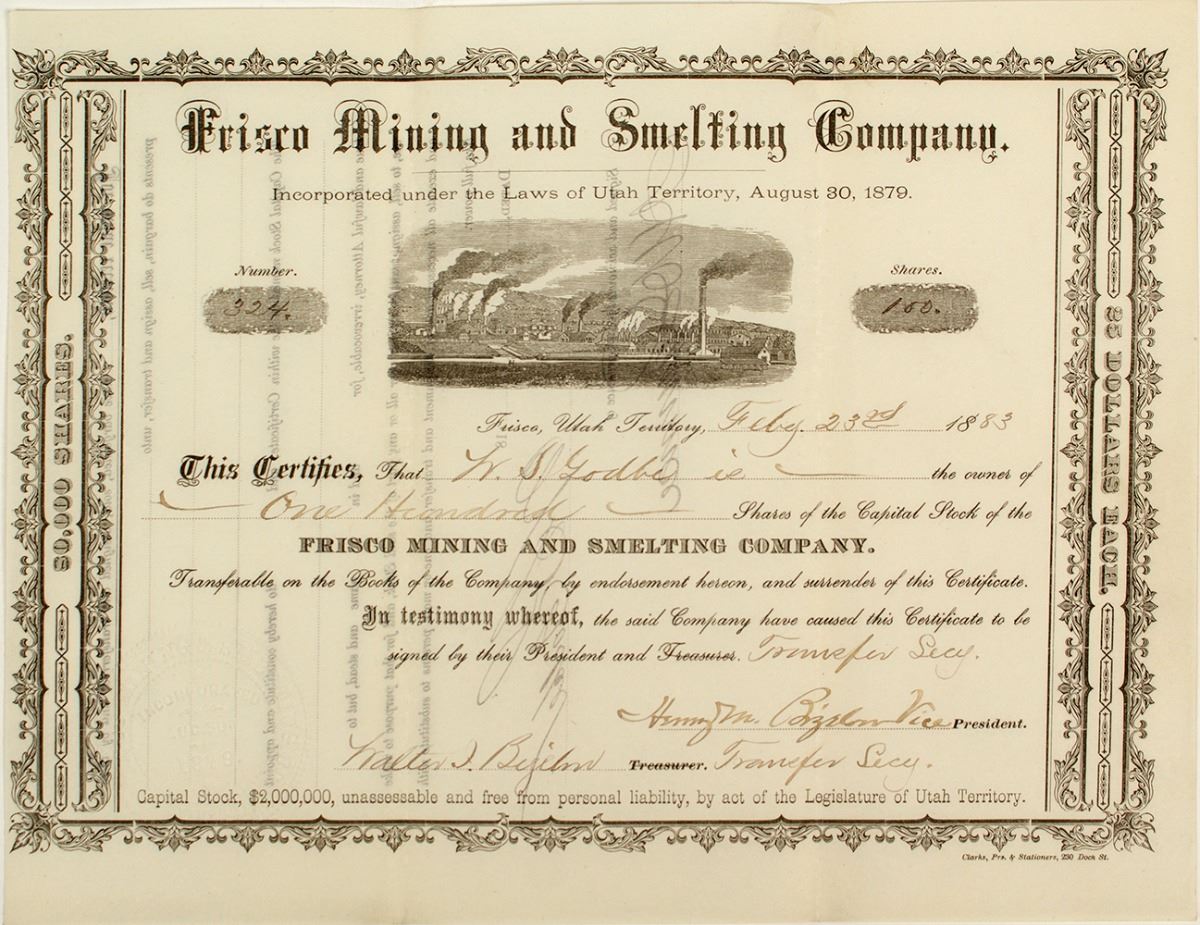 Frisco Mining and Smelting Company.
Incorporated under the Laws of Utah Territory, August 30, 1879.
Number.
324.
Shares.
100.
80,000 SHARES.
25 DOLLARS EACH.
Frisco, Utah Territory, Feby. 23rd 1883
This Certifies, That W. S. Godbe is the owner of
One Hundred Shares of the Capital Stock of the
FRISCO MINING AND SMELTING COMPANY.
Transferable on the Books of the Company, by endorsement hereon, and surrender of this Certificate.
In testimony whereof, the said Company have caused this Certificate to be
signed by their President and Treasurer. Transfer Secy.
Henry M. Bigelow Vice President.
Walter I. Bigelow Treasurer. Transfer Secy.
Capital Stock, $2,000,000, unassessable and free from personal liability, by act of the Legislature of Utah Territory.
Clarks, Prs. & Stationers, 230 Dock St.